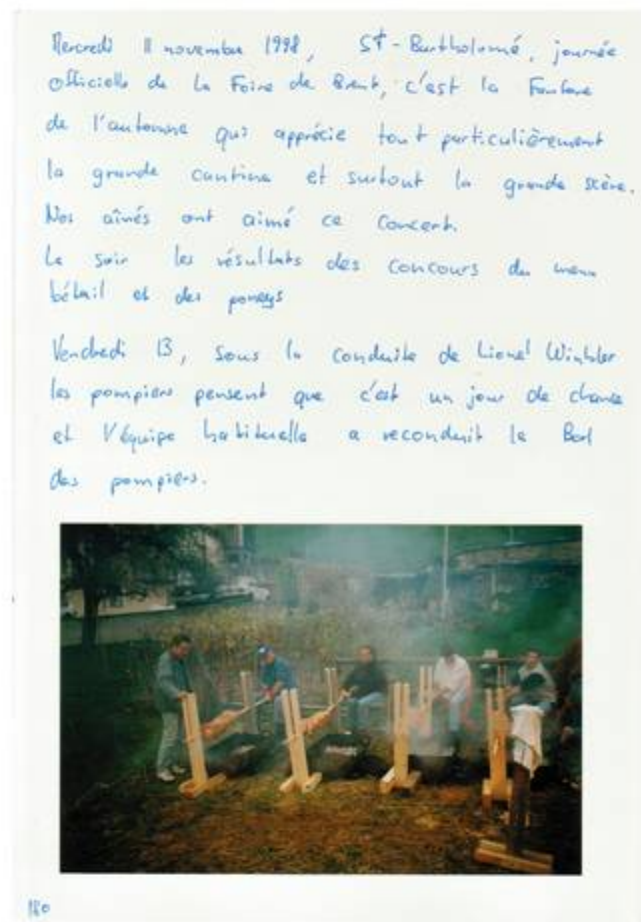 Mercredi 11 novembre 1998, St-Bartholomé, journée
officielle de la Foire de Brent, c'est la Fanfare
de l'automne qui apprécie tout particulièrement
la grande cantine et surtout la grande scène.
Nos aînés ont aimé ce concert.
Le soir les résultats des concours du menu
bétail et des poneys
Vendredi 13, sous la conduite de Lionel Winkler
les pompiers pensent que c'est un jour de chance
et l'équipe habituelle a reconduit le Bal
des pompiers.
180